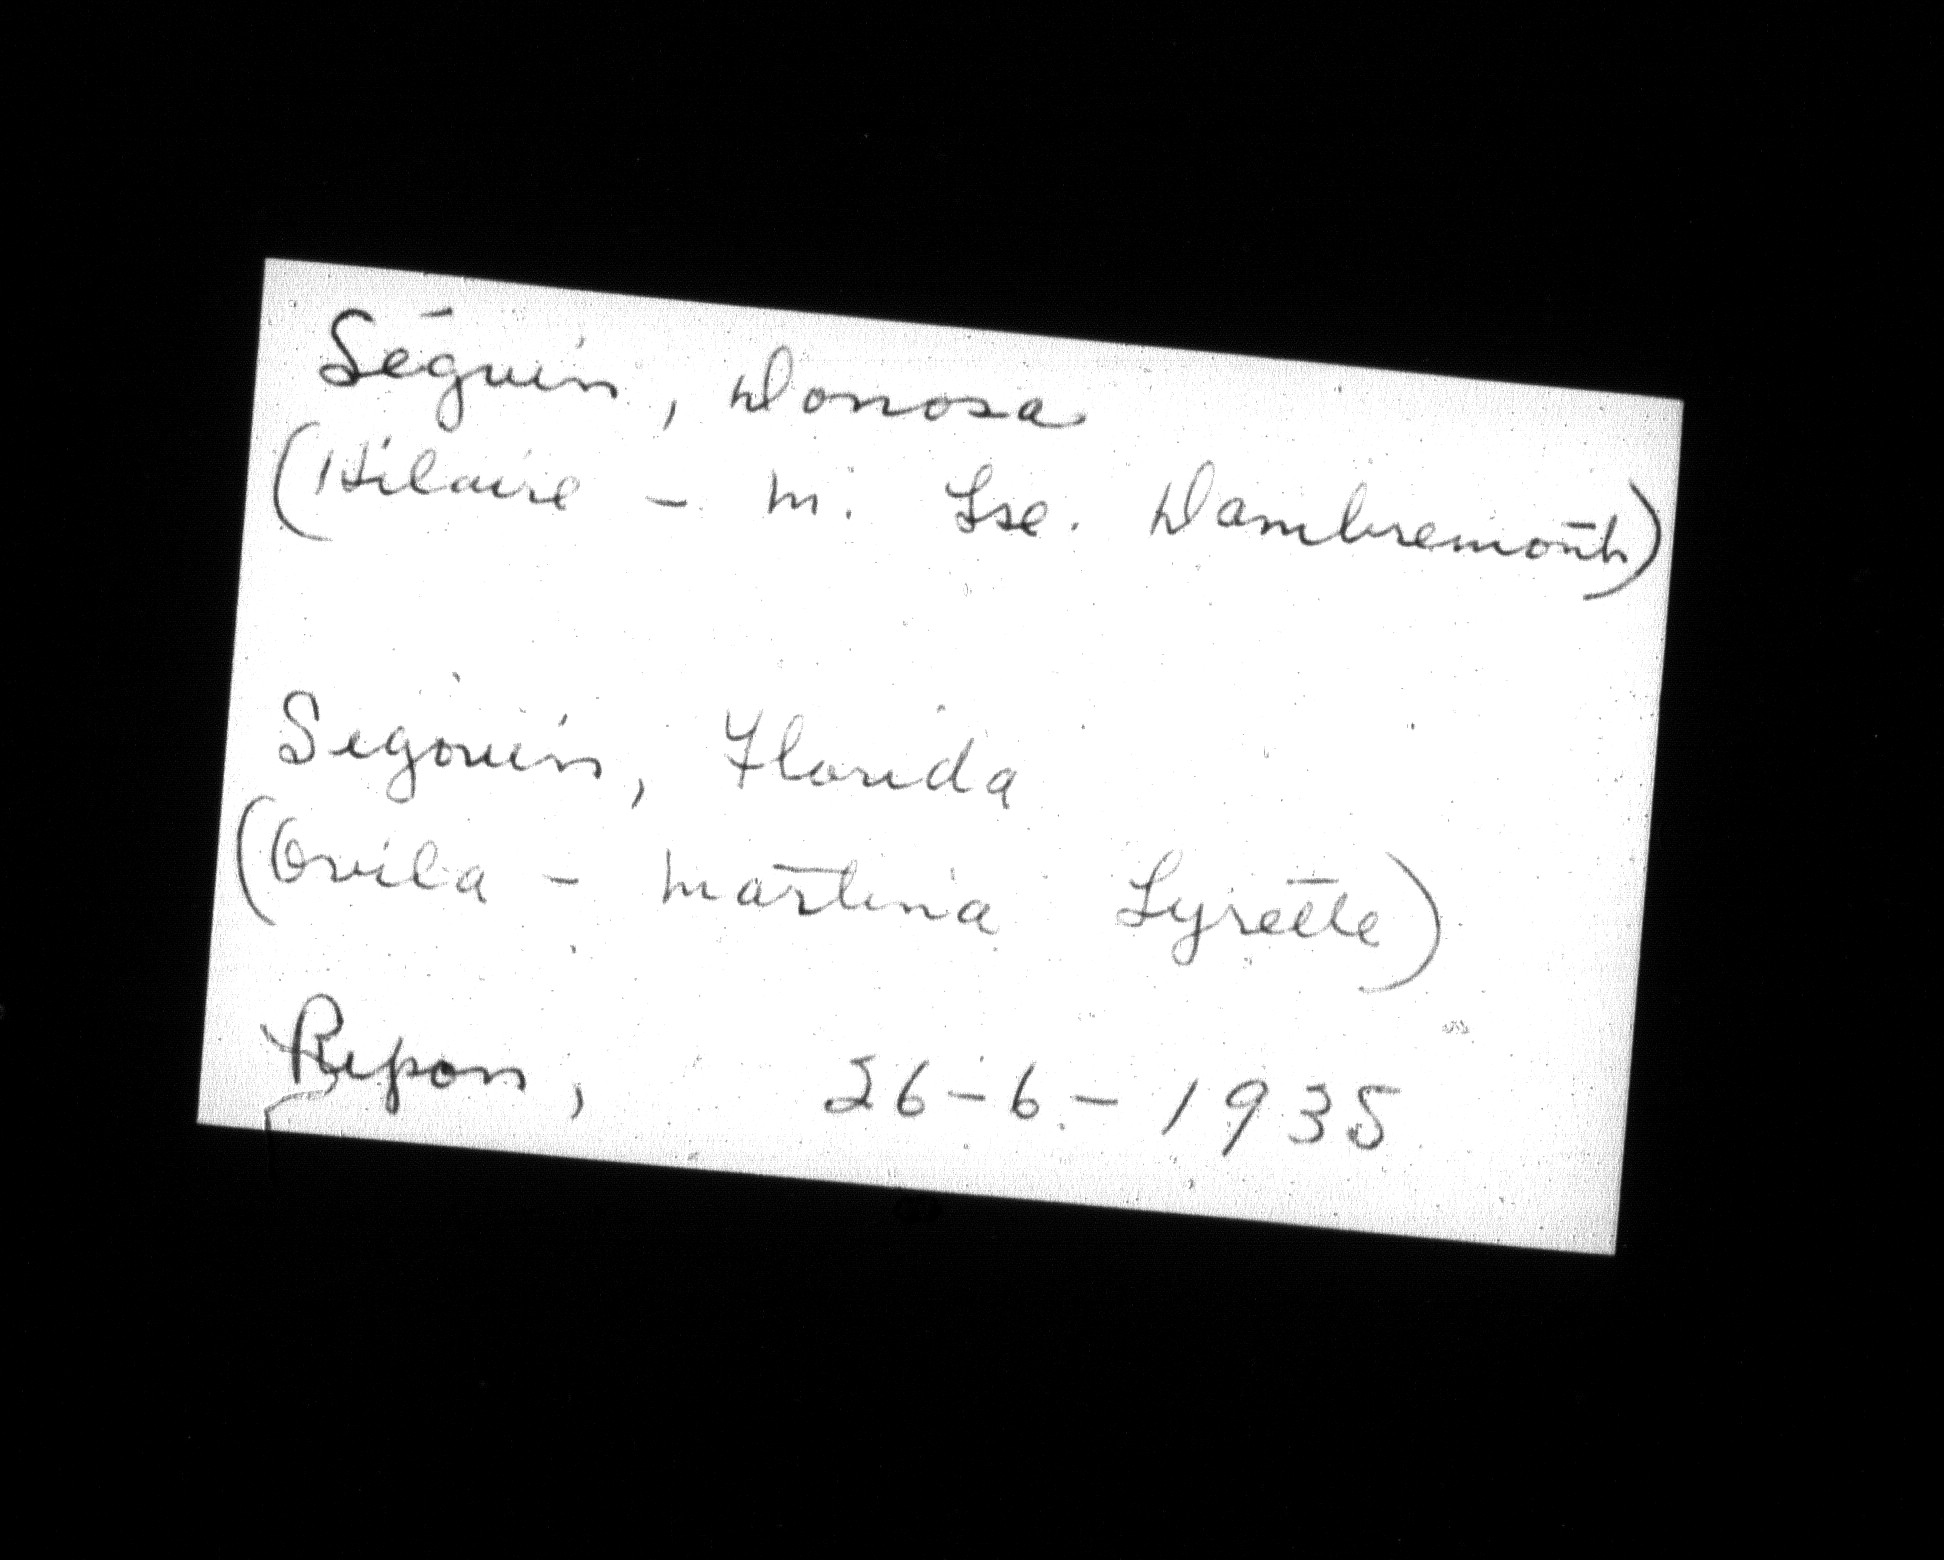 Séguin, Donosa
(Hilaire - M. Lse. Dambremont)
Segouin, Florida
(Ovila - Martina Lyrette)
Ripon, 26-6-1935